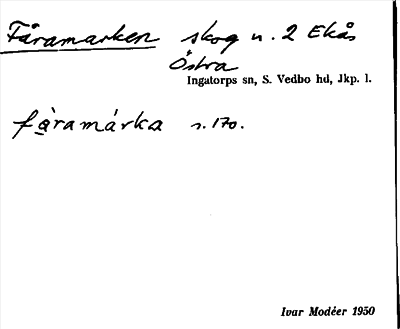 Fåramarken skog n. 2 Ekås
Östra
Ingatorps sn, S. Vedbo hd, Jkp. l.
fàramárka s. 170.
Ivar Modéer 1950